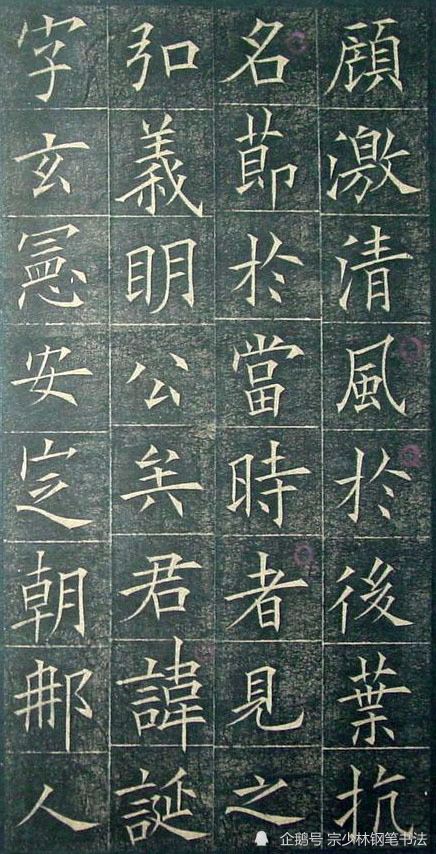 顧激清風於後葉抗
名莭於當時者見之
弘義明公矣君諱誕
字玄憲安定朝那人
企鹅号 宗少林钢笔书法